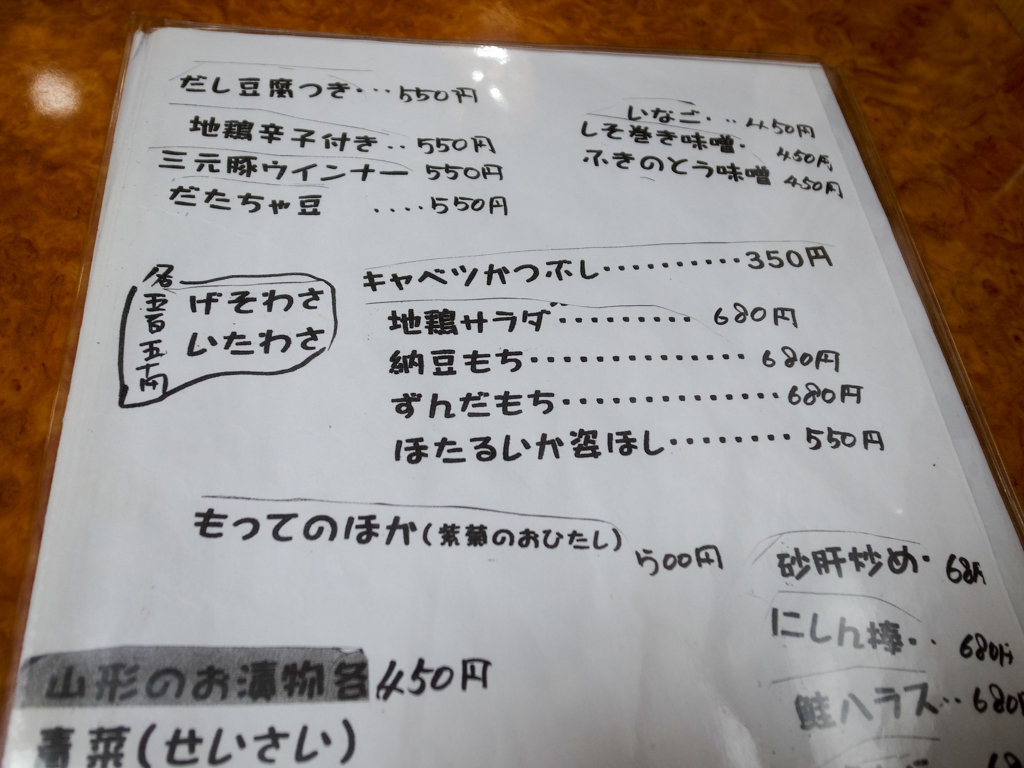 だし豆腐つき・・・550円
地鶏辛子付き・・550円
三元豚ウインナー 550円
だだちゃ豆 ....550円
いなご...450円
しそ巻き味噌・450円
ふきのとう味噌 450円
各五百五十円
げそわさ
いたわさ
キャベツかつぶし・・・・・・・・・・350円
地鶏サラダ・・・・・・・・・680円
納豆もち・・・・・・・・・・・・・・680円
ずんだもち・・・・・・・・・・・・・・680円
ほたるいか姿ほし・・・・・・・・550円
もってのほか(紫菊のおひたし)
500円
砂肝炒め・68円
にしん棒・・680円
鮭ハラス...680円
山形のお漬物各450円
青菜(せいさい)